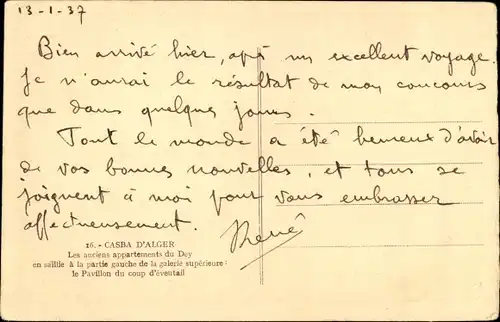 13-1-37
Bien arrivé hier, apr un excellent voyage.
Je n'aurai le résultat de mon concours
que dans quelques jours.
Tout le monde a été heureux d'avoir
de vos bonnes nouvelles, et tous se
joignent à moi pour vous embrasser
affectueusement.
René
16. - CASBA D'ALGER
Les anciens appartements du Dey
en saillie à la partie gauche de la galerie supérieure :
le Pavillon du coup d'éventail